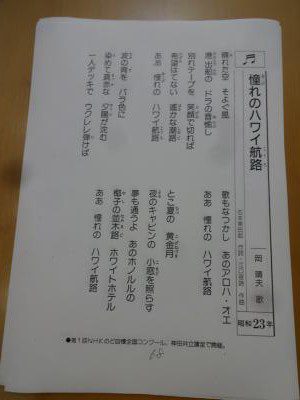 憧れのハワイ航路
岡 晴夫 歌
昭和23年
晴れた空 そよぐ風
港出船の ドラの音愉し
別れテープを 笑顔で切れば
希望はてない 遥かな潮路
ああ 憧れの ハワイ航路
波の背を バラ色に
染めて真赤な 夕陽が沈む
一人デッキで ウクレレ弾けば
歌もなつかし あのアロハ・オエ
ああ 憧れの ハワイ航路
とこ夏の 黄金月
夜のキャビンの 小窓を照らす
夢も通うよ あのホノルルの
椰子の並木路 ホワイトホテル
ああ 憧れの ハワイ航路
●第1回NHKのど自慢全国コンクール、神田共立講堂で開催。
68